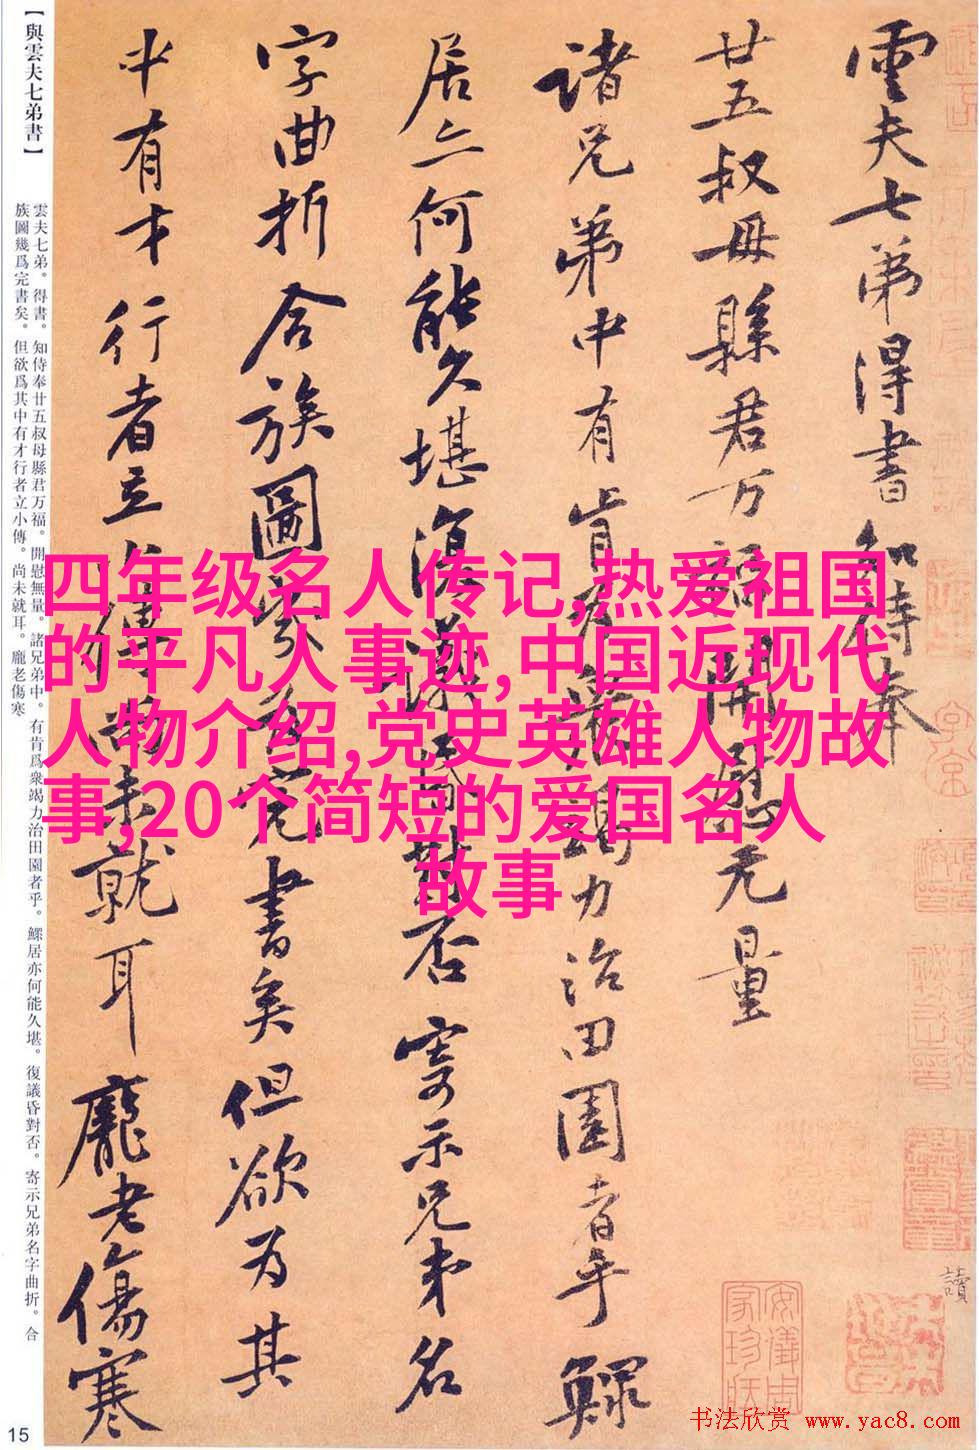 雲夫七弟得書知侍奉
廿五叔母縣君万福開慰无量
諸兄弟中有肯為衆竭力治田園者乎鰥
居亦何能久堪復議昏對否寄示兄弟名
字曲折合族圖幾為完書矣但欲為其
中有才行者立小傳尚未就耳龐老傷寒
讀
安儀周
家珍藏
【與雲夫七弟書】
雲夫七弟。得書。知侍奉廿五叔母縣君万福。開慰無量。諸兄弟中。有肯爲衆竭力治田園者乎。鰥居亦何能久堪。復議昏對否。寄示兄弟名字曲折。合
族圖幾爲完書矣。但欲爲其中有才行者立小傳。尚未就耳。龐老傷寒
四年级名人传记,热爱祖国
的平凡人事迹,中国近现代
人物介绍,党史英雄人物故
事,20个简短的爱国名人
故事
15
书法欣赏 www.yac8.com